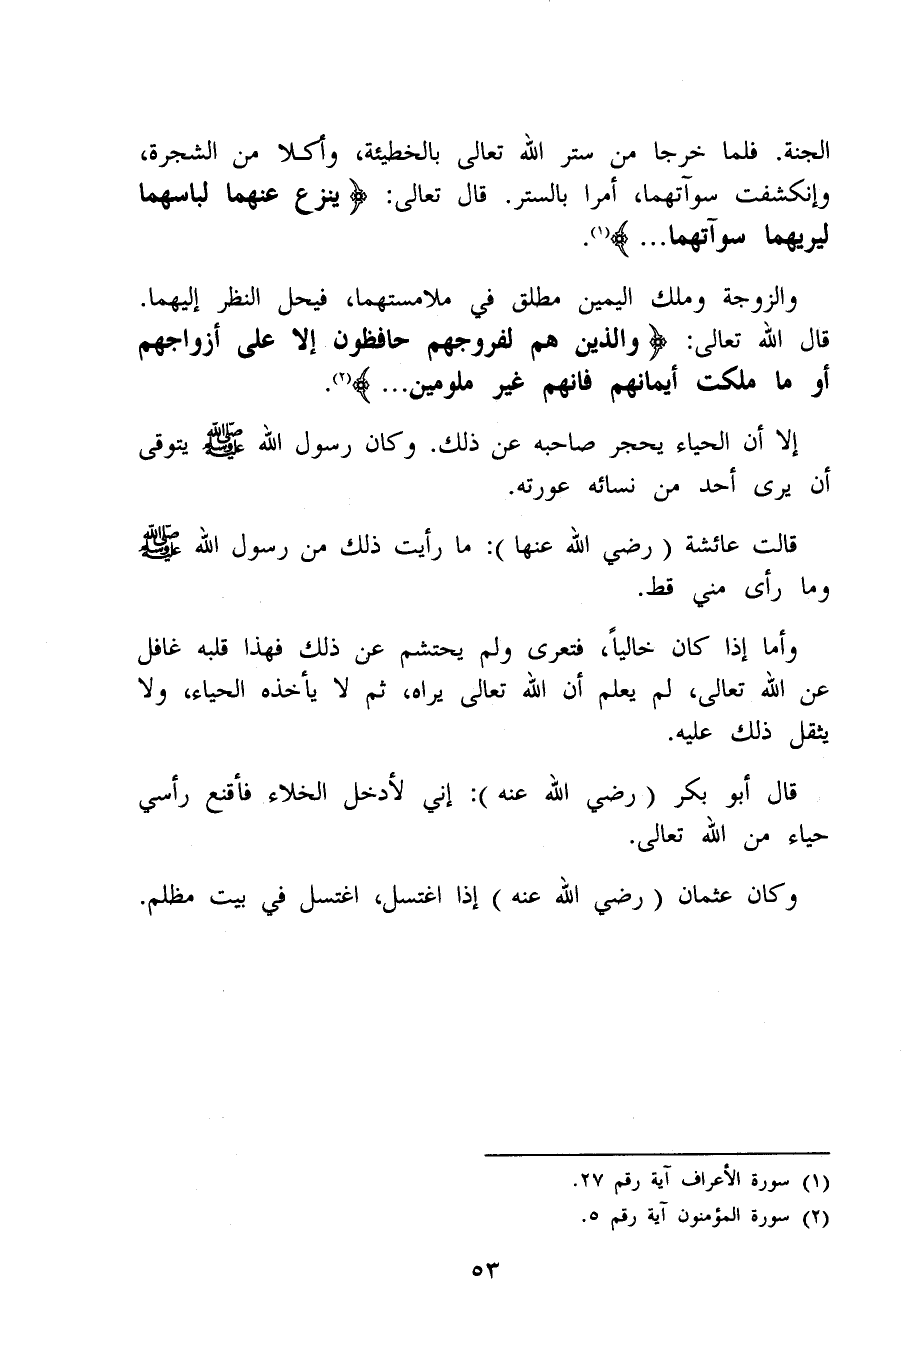 الجنة. فلما خرجا من ستر الله تعالى بالخطيئة، وأكلا من الشجرة،
وإنكشفت سوآتهما، أمرا بالستر. قال تعالى: ﴿ ينزع عنهما لباسهما
ليريهما سوآتهما... ﴾(١).
والزوجة وملك اليمين مطلق في ملامستهما، فيحل النظر إليهما.
قال الله تعالى: ﴿ والذين هم لفروجهم حافظون إلا على أزواجهم
أو ما ملكت أيمانهم فانهم غير ملومين... ﴾(٢).
إلا أن الحياء يحجر صاحبه عن ذلك. وكان رسول الله ﷺ يتوقى
أن يرى أحد من نسائه عورته.
قالت عائشة ( رضي الله عنها ): ما رأيت ذلك من رسول الله ﷺ
وما رأى مني قط.
وأما إذا كان خالياً، فتعرى ولم يحتشم عن ذلك فهذا قلبه غافل
عن الله تعالى، لم يعلم أن الله تعالى يراه، ثم لا يأخذه الحياء، ولا
يثقل ذلك عليه.
قال أبو بكر ( رضي الله عنه ): إني لأدخل الخلاء فأقنع رأسي
حياء من الله تعالى.
وكان عثمان ( رضي الله عنه ) إذا اغتسل، اغتسل في بيت مظلم.
(١) سورة الأعراف آية رقم ٢٧.
(٢) سورة المؤمنون آية رقم ٥.
٥٣